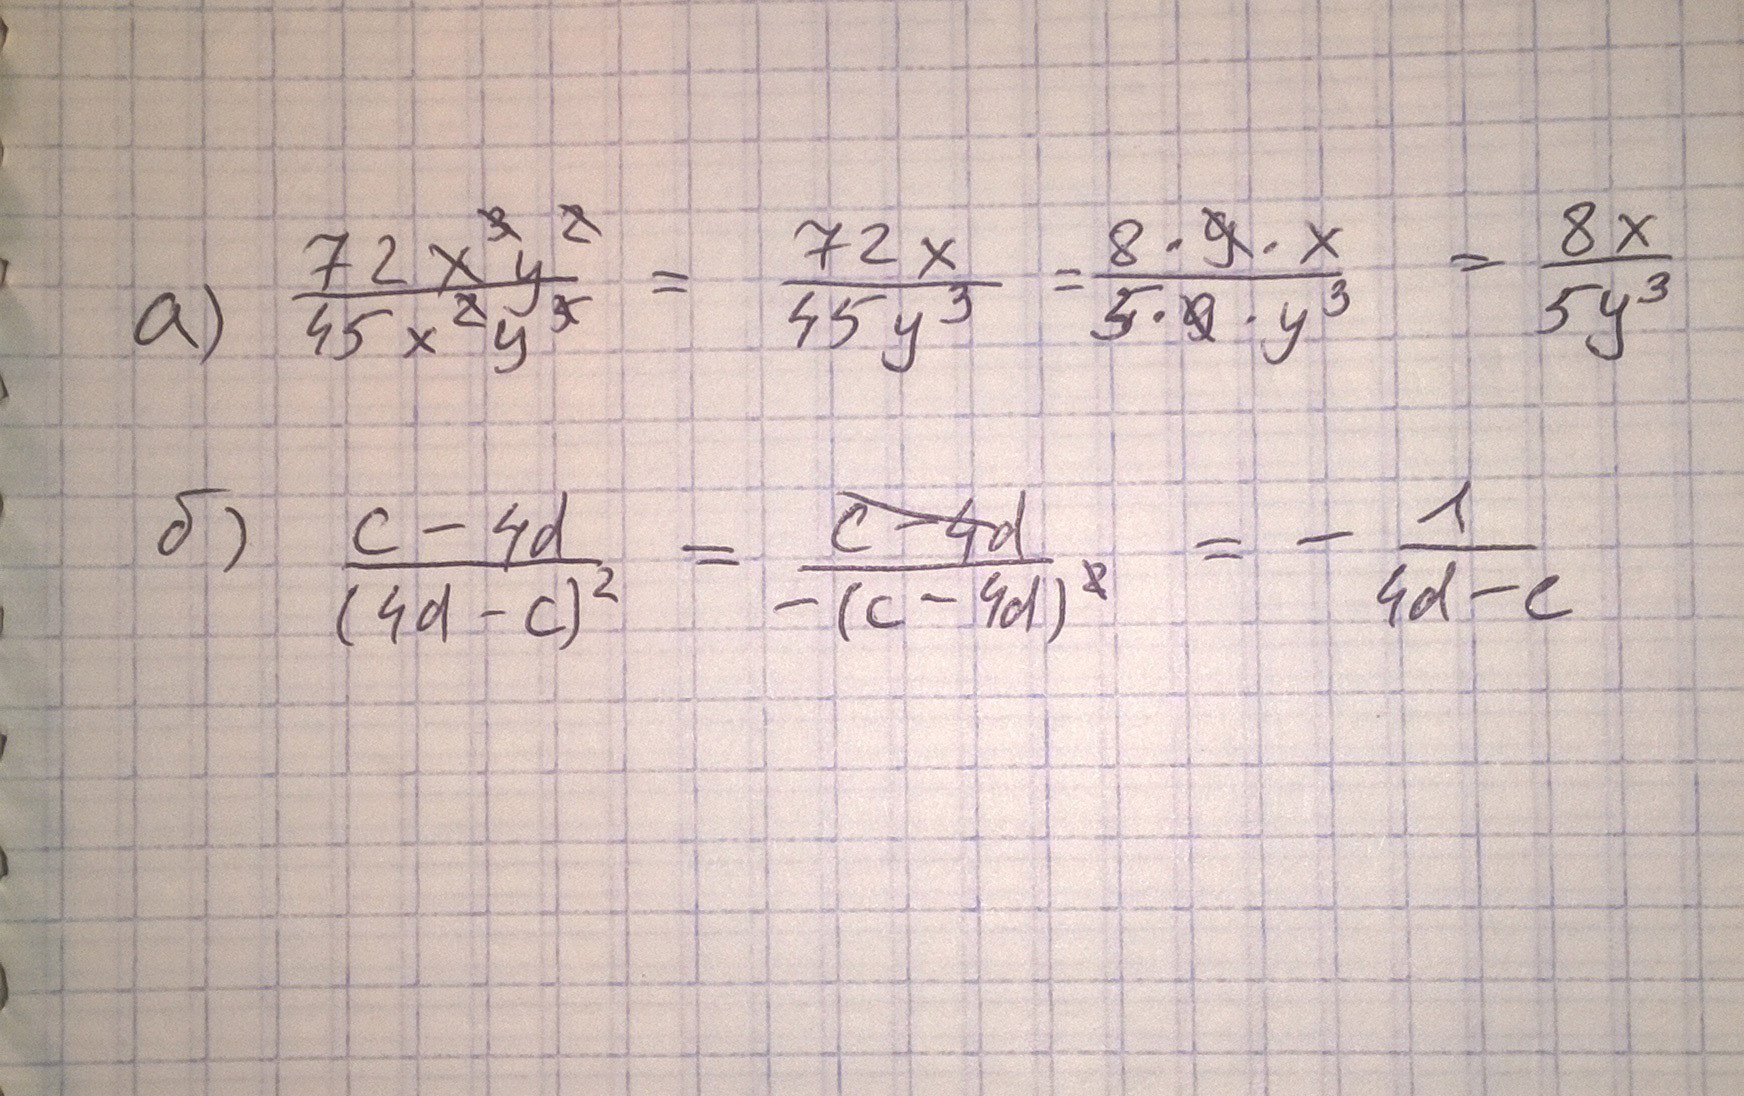 а) 72x³y²/45x²y⁵ = 72x/45y³ = 8·9·x/5·9·y³ = 8x/5y³
б) c-4d/(4d-c)² = c-4d/-(c-4d)² = - 1/4d-c